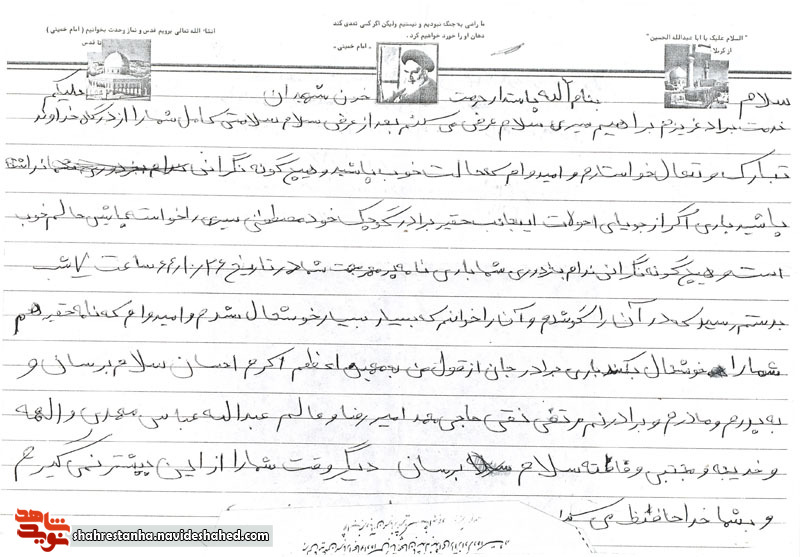 انشاء الله تعالی برویم قدس و نماز وحدت بخوانیم ( امام خمینی )
تا قدس
ما راضی به جنگ نبودیم و نیستیم ولیکن اگر کسی تعدی کند
دهان او را خورد خواهیم کرد .
« امام خمینی »
"السلام علیک یا ابا عبدالله الحسین"
از کربلا
سلام بنام الله پاسدار حرمت خون شهیدان علیکم
خدمت برادر عزیزم ابراهیم میری سلام عرض می کنم بعد از عرض سلام سلامتی کامل شما را از درگاه خداوند
تبارک و تعالی خواستارم و امیدوارم که حالت خوب باشید و هیچ گونه نگرانی نداشته
باشید باری اگر از جویای احوالات اینجانب حقیر برادر کوچک خود مصطفی میری را خواسته باشی حالم خوب
است و هیچ گونه نگرانی ندارم بجز دوری شما باری نامه پر مهر محبت شما در تاریخ ۶۴/۱۰/۲۶ ساعت ۷ شب
بدستم رسید که در آن را گوشدم و آن را خواندم که بسیار بسیار خوشحال شدم و امیدوارم که نامه حقیر هم
شما را خوشحال بکند باری برادر جان از قول من به اعظم اکرم احسان سلام برسان و
به پدرم و مادرم و برادرنم مرتضی نقی حاجی محمد امیر رضا و عالم عبدالله عباس مهدی و الهه
و خدیجه و مجتبی و فاطمه سلام برسان دیگر وقت شما را از این بیشتر نمی گیرم
و بشما خداحافظ می
نوید شاهد
shahrestanha.navideshahed.com